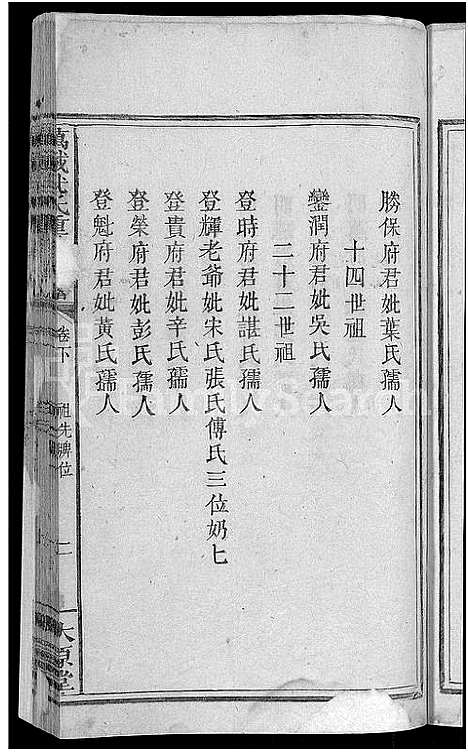 勝保府君妣葉氏孺人
十四世祖
鑾潤府君妣吳氏孺人
二十二世祖
登時府君妣諶氏孺人
登輝老爺妣朱氏張氏傅氏三位奶七
登貴府君妣辛氏孺人
登榮府君妣彭氏孺人
登魁府君妣黃氏孺人
萬載
卷下
祖先牌位
二
太原堂
FamilySearch